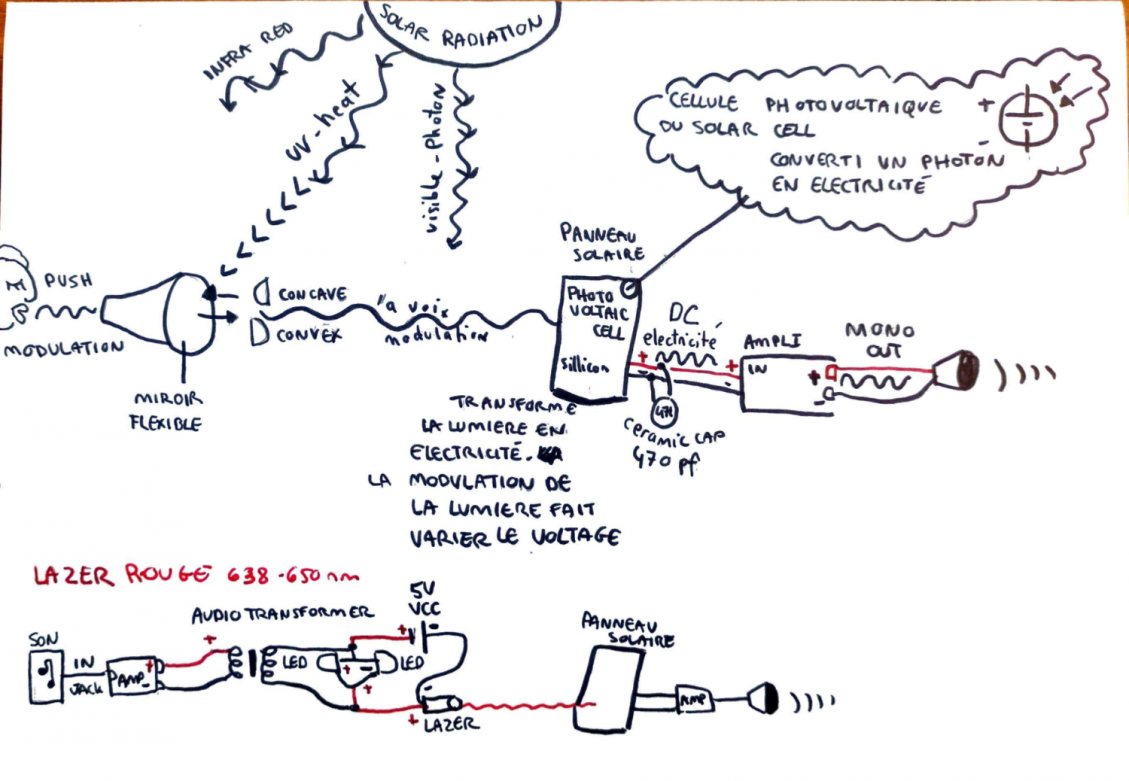 SOLAR RADIATION
INFRA RED
UV-heat
visible-Photon
CELLULE PHOTOVOLTAIQUE
OU SOLAR CELL
CONVERTI UN PHOTON
EN ELECTRICITÉ
+
PUSH
MODULATION
MIROIR
FLEXIBLE
CONCAVE
CONVEX
la voix
modulation
PANNEAU
SOLAIRE
PHOTO
VOLTAIC
CELL
Sillicon
DC
electricité
+ +
- -
471
Ceramic CAP
470 pf
AMPLI
IN
+
-
MONO
OUT
TRANSFORME
LA LUMIERE EN
ELECTRICITÉ.
LA MODULATION DE
LA LUMIERE FAIT
VARIER LE VOLTAGE
LAZER ROUGE 638-650nm
SON
IN
JACK
AMP
+
-
+
AUDIO TRANSFORMER
LED
+ -
LED
+
5V
VCC
+ -
-
+
LAZER
PANNEAU
SOLAIRE
AMP